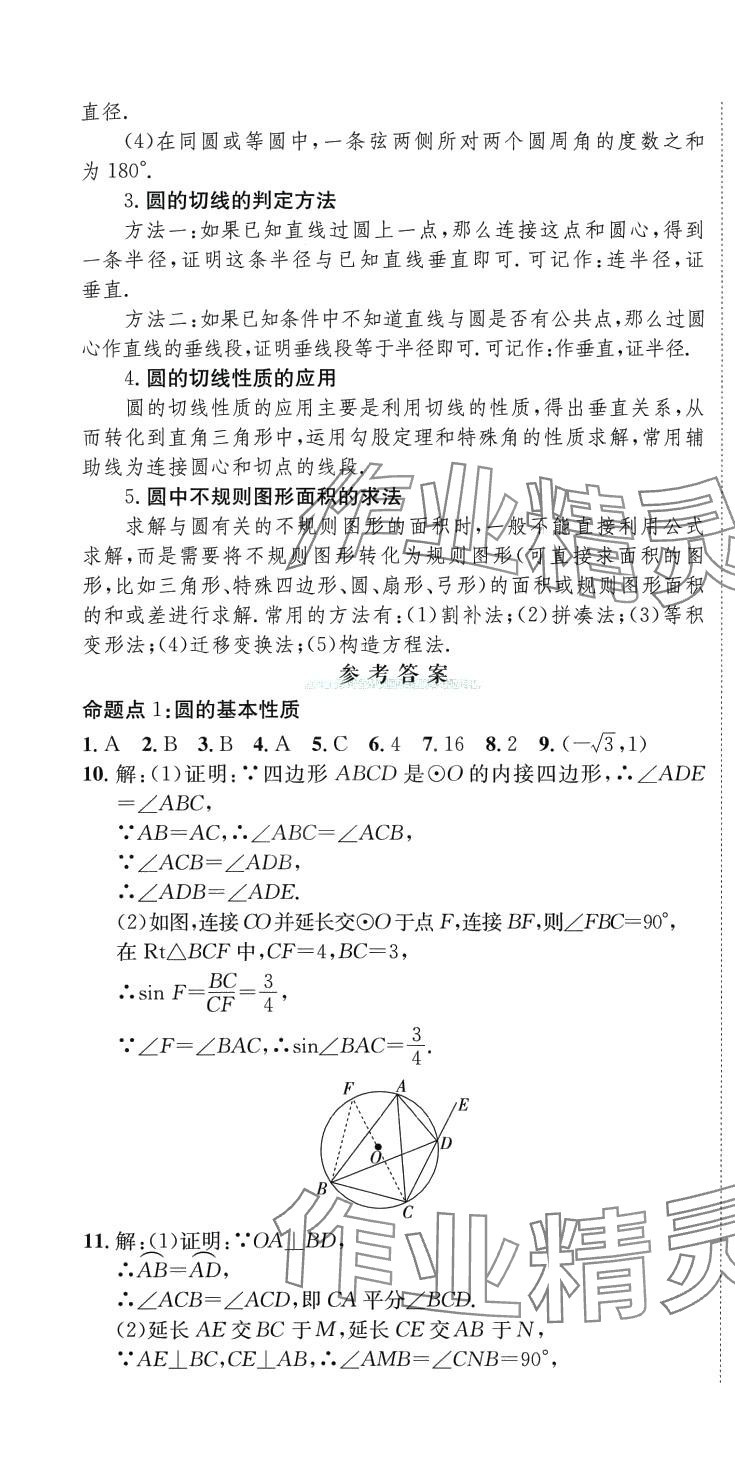 直径.
(4)在同圆或等圆中,一条弦两侧所对两个圆周角的度数之和
为 180°.
3. 圆的切线的判定方法
方法一:如果已知直线过圆上一点,那么连接这点和圆心,得到
一条半径,证明这条半径与已知直线垂直即可. 可记作:连半径,证
垂直.
方法二:如果已知条件中不知道直线与圆是否有公共点,那么过圆
心作直线的垂线段,证明垂线段等于半径即可. 可记作:作垂直,证半径.
4. 圆的切线性质的应用
圆的切线性质的应用主要是利用切线的性质,得出垂直关系,从
而转化到直角三角形中,运用勾股定理和特殊角的性质求解,常用辅
助线为连接圆心和切点的线段.
5. 圆中不规则图形面积的求法
求解与圆有关的不规则图形的面积时,一般不能直接利用公式
求解,而是需要将不规则图形转化为规则图形(可直接求面积的图
形,比如三角形、特殊四边形、圆、扇形、弓形)的面积或规则图形面积
的和或差进行求解. 常用的方法有:(1)割补法;(2)拼凑法;(3)等积
变形法;(4)迁移变换法;(5)构造方程法.
参考答案
命题点 1:圆的基本性质
1. A 2. B 3. B 4. A 5. C 6. 4 7. 16 8. 2 9. (−√3,1)
10. 解:(1)证明:∵四边形 ABCD 是⊙O 的内接四边形,∴∠ADE
=∠ABC,
∵AB=AC,∴∠ABC=∠ACB,
∵∠ACB=∠ADB,
∴∠ADB=∠ADE.
(2)如图,连接 CO 并延长交⊙O 于点 F,连接 BF,则∠FBC=90°,
在 Rt△BCF 中,CF=4,BC=3,
∴sin F=BC/CF=3/4,
∵∠F=∠BAC,∴sin∠BAC=3/4.
F A
E
D
O
B
C
11. 解:(1)证明:∵OA⊥BD,
∴⌒AB=⌒AD,
∴∠ACB=∠ACD,即 CA 平分∠BCD.
(2)延长 AE 交 BC 于 M,延长 CE 交 AB 于 N,
∵AE⊥BC,CE⊥AB,∴∠AMB=∠CNB=90°,
作业精灵
作业精灵